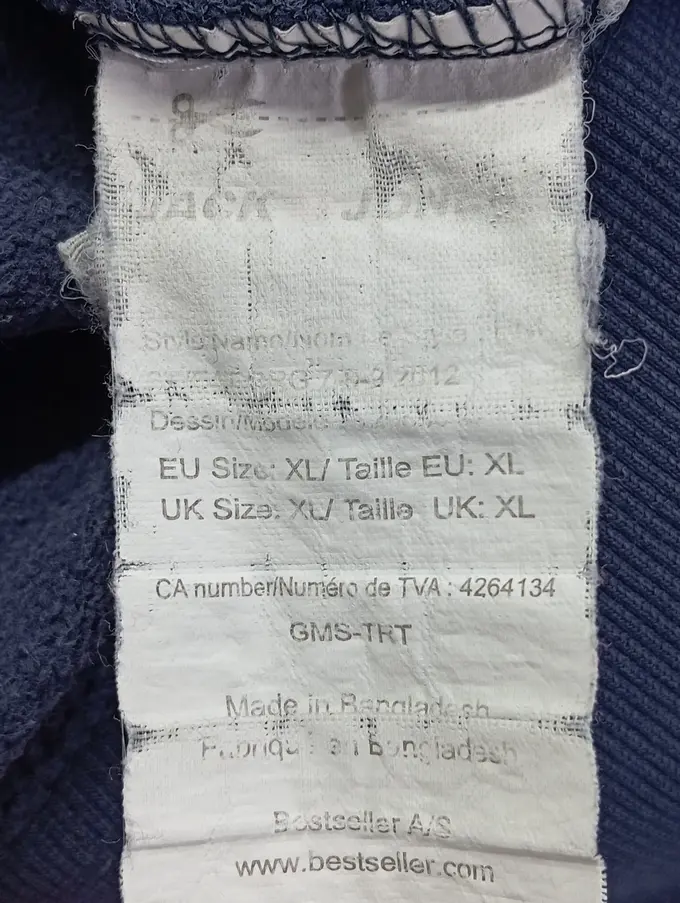 JACK JON
Style Name/Nom
7 8-9 2012
Dessin/Modele
EU Size: XL/ Taille EU: XL
UK Size: XL/ Taille UK: XL
CA number/Numéro de TVA : 4264134
GMS-TRT
Made in Bangladesh
Fabriqu en Bangladesh
Bestseller A/S
www.bestseller.com